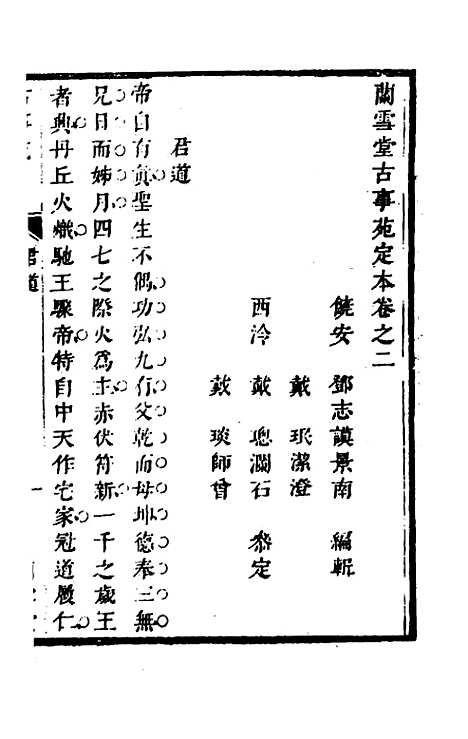 蘭雪堂古事苑定本卷之二
饒安 鄧志謨景南 編輯
戴 珉潔澄
西泠 戴 璁瀾石 叅定
戴 琰師曾
君道
帝自有眞聖生不偶功弘九有父乾而母坤德奉三無
兄日而姊月四七之際火爲主赤伏符新一千之歲王
者興丹丘火熾馳王驟帝特自中天作宅家冠道履仁
君道
一